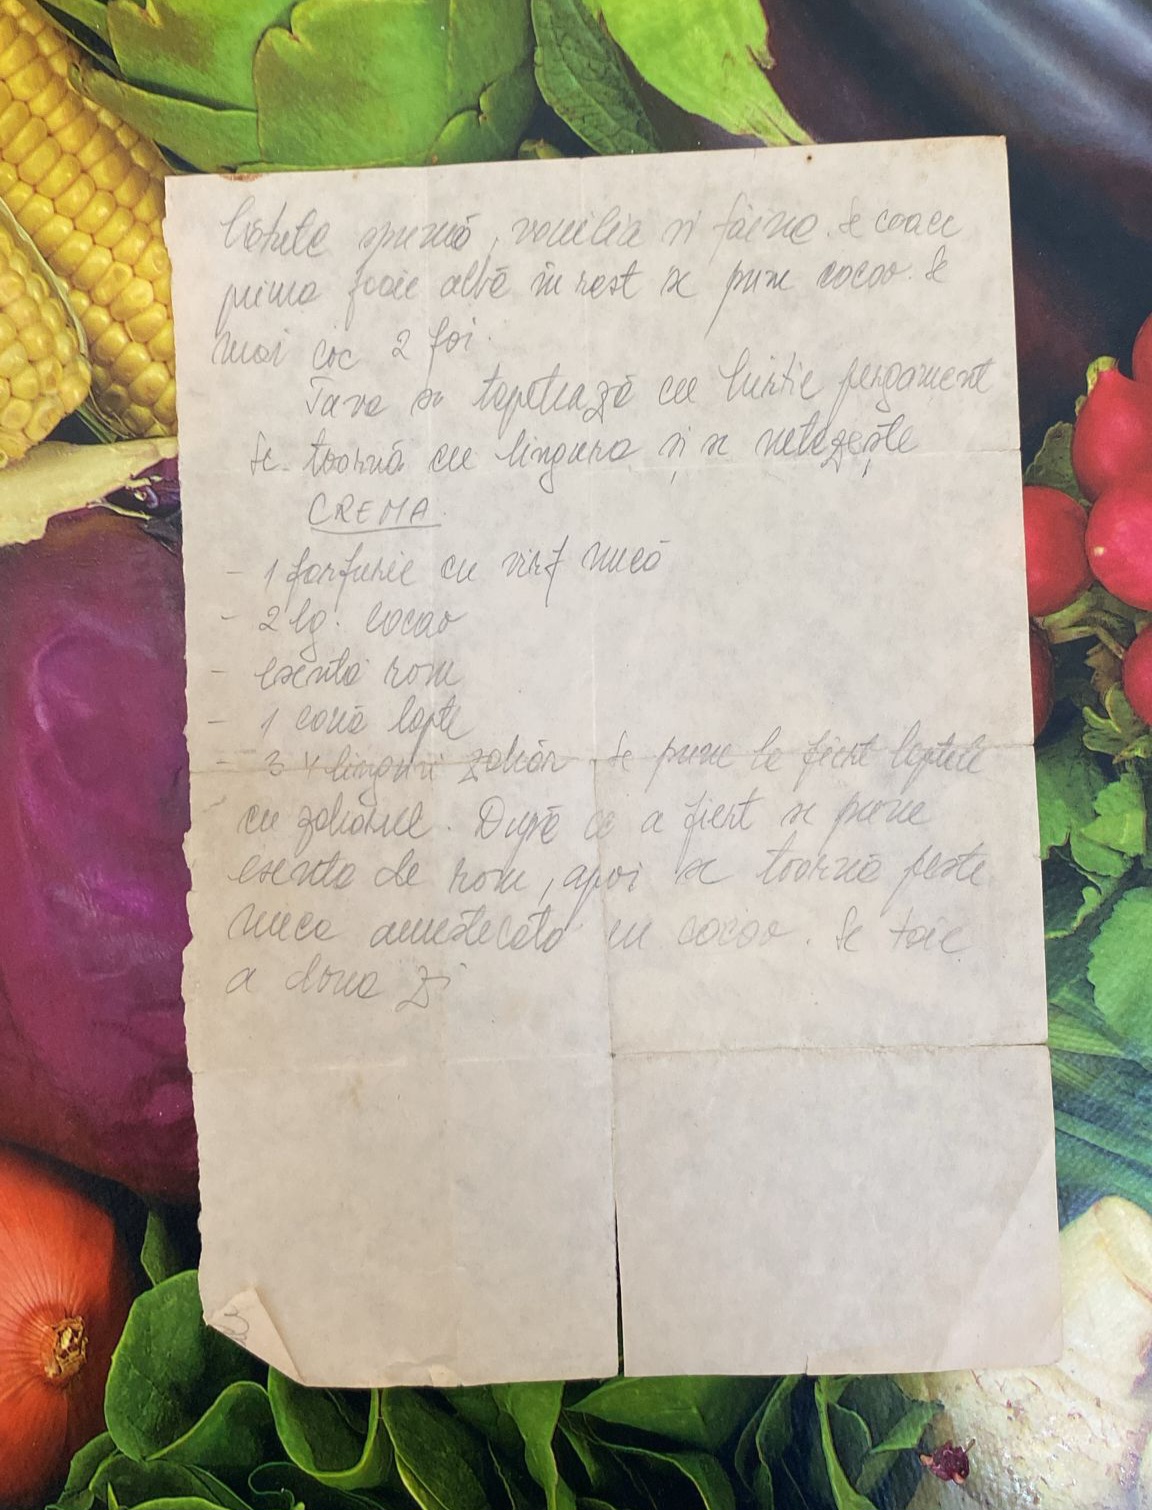 bătute spumă, vanilia si făina. Se coace
prima foaie albă în rest se pune cacao. Se
mai coc 2 foi.
Tava se tapetează cu hirtie pergament
Se toarnă cu lingura și se netezește
CREMA
- 1 farfurie cu virf nucă
- 2 lg. cacao
- esenta rom
- 1 cană lapte
- 3 4 linguri zahăr. Se pune la fiert laptele
cu zahărul. După ce a fiert se pune
esenta de rom, apoi se toarnă peste
nuca amestecata cu cacao. Se taie
a doua zi